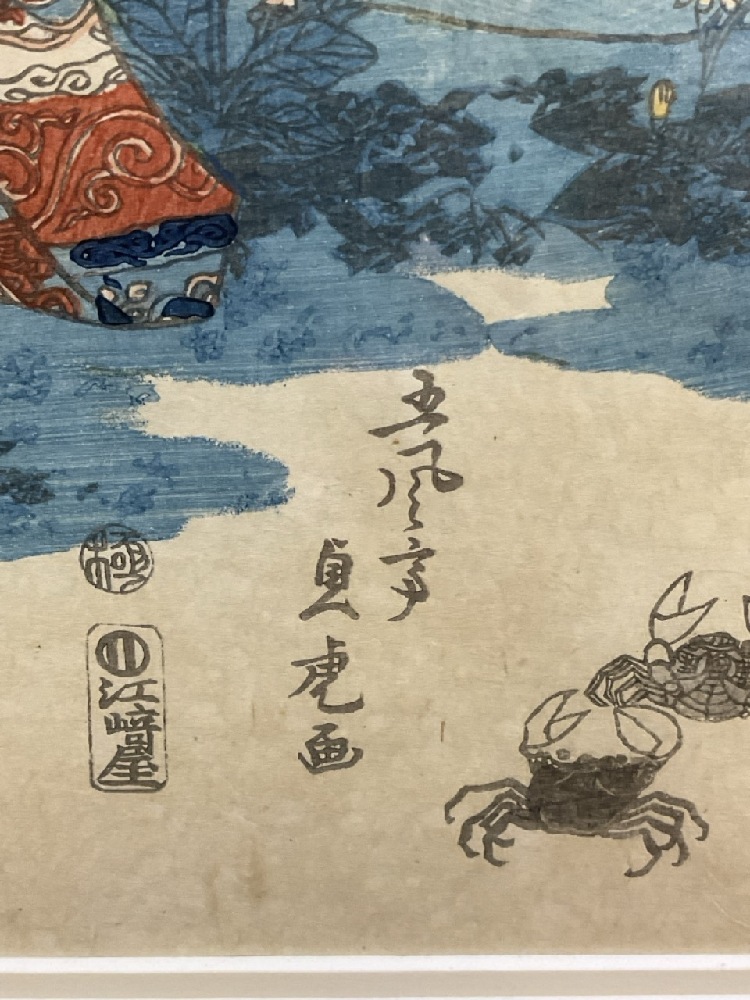 五風亭
貞虎画
極
川
江﨑屋